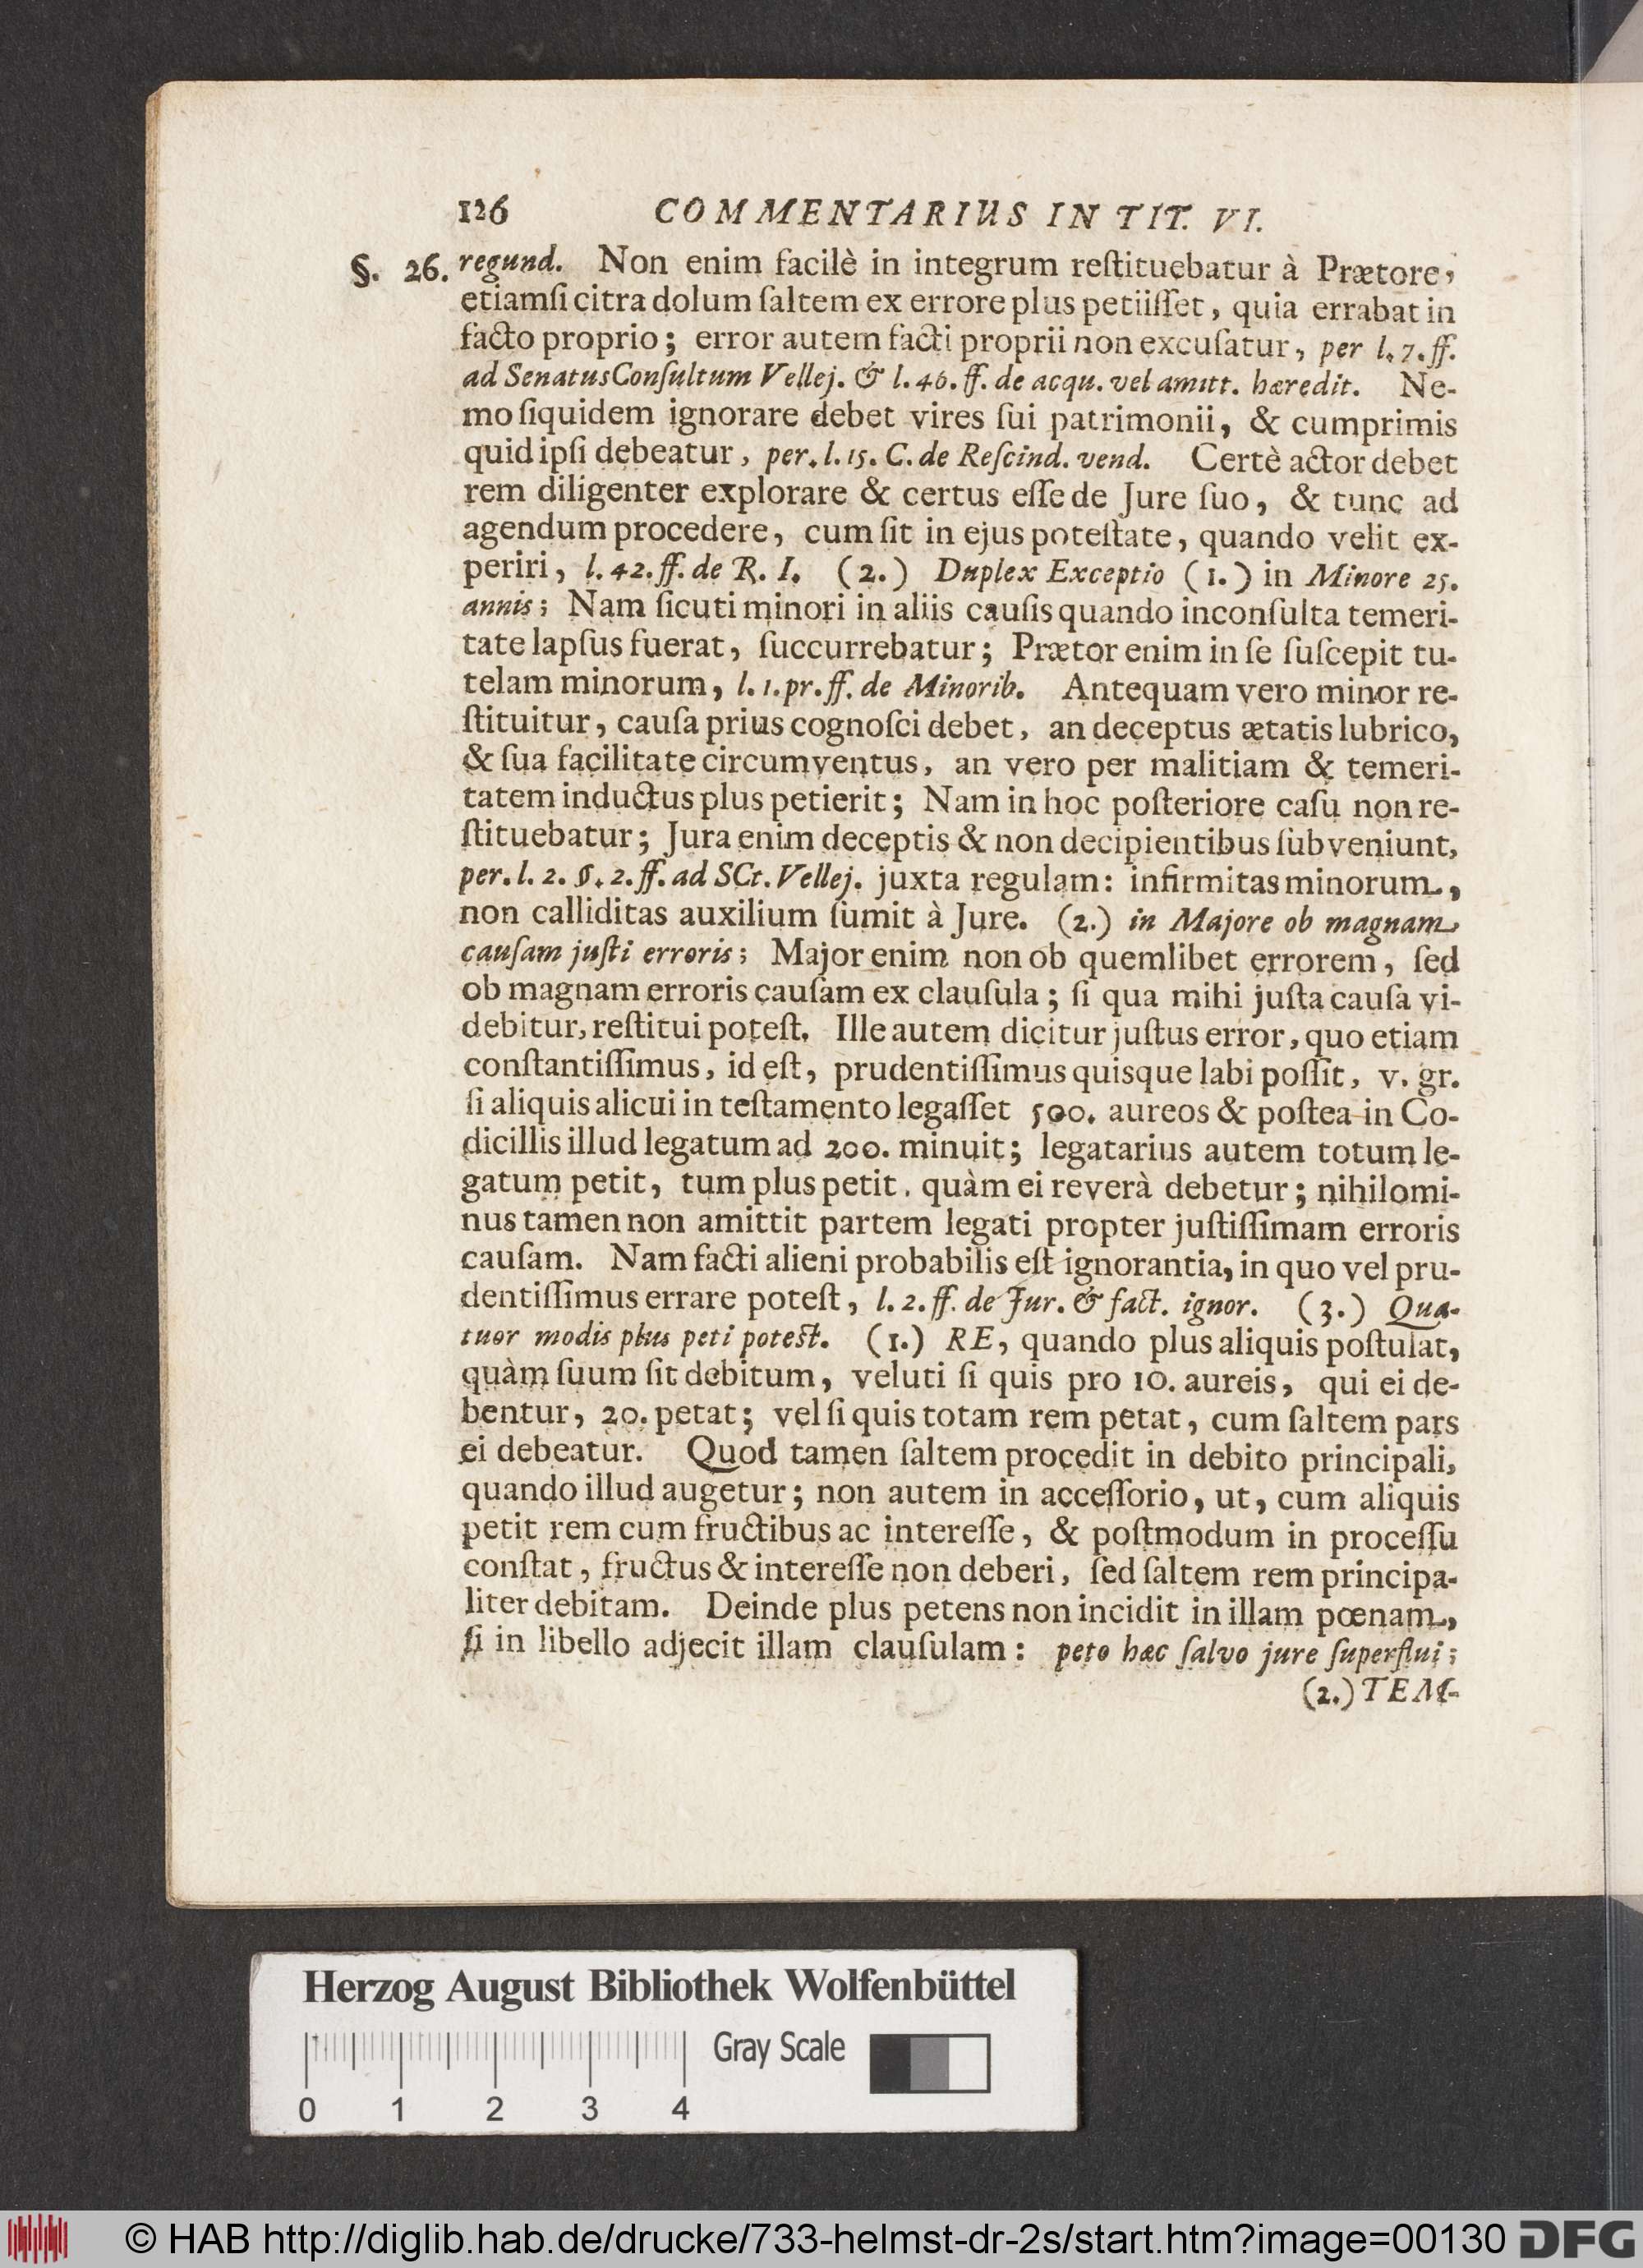 126 COMMENTARIUS IN TIT. VI.
§. 26. regund. Non enim facilè in integrum reſtituebatur à Prætore,
etiamſi citra dolum ſaltem ex errore plus petiiſſet, quia errabat in
facto proprio; error autem facti proprii non excuſatur, per l. 7. ff.
ad SenatusConſultum Vellej. & l. 46. ff. de acqu. vel amitt. hæredit. Ne-
mo ſiquidem ignorare debet vires ſui patrimonii, & cumprimis
quid ipſi debeatur, per. l. 15. C. de Reſcind. vend. Certè actor debet
rem diligenter explorare & certus eſſe de Jure ſuo, & tunc ad
agendum procedere, cum ſit in ejus poteſtate, quando velit ex-
periri, l. 42. ff. de R. I. (2.) Duplex Exceptio (1.) in Minore 25.
annis; Nam ſicuti minori in aliis cauſis quando inconſulta temeri-
tate lapſus fuerat, ſuccurrebatur; Prætor enim in ſe ſuſcepit tu-
telam minorum, l. 1. pr. ff. de Minorib. Antequam vero minor re-
ſtituitur, cauſa prius cognoſci debet, an deceptus ætatis lubrico,
& ſua facilitate circumventus, an vero per malitiam & temeri-
tatem inductus plus petierit; Nam in hoc poſteriore caſu non re-
ſtituebatur; Jura enim deceptis & non decipientibus ſubveniunt,
per. l. 2. §. 2. ff. ad SCt. Vellej. juxta regulam: infirmitas minorum,
non calliditas auxilium ſumit à Jure. (2.) in Majore ob magnam
cauſam juſti erroris; Major enim non ob quemlibet errorem, ſed
ob magnam erroris cauſam ex clauſula; ſi qua mihi juſta cauſa vi-
debitur, reſtitui poteſt. Ille autem dicitur juſtus error, quo etiam
conſtantiſſimus, id eſt, prudentiſſimus quisque labi poſſit, v. gr.
ſi aliquis alicui in teſtamento legaſſet 500. aureos & poſtea in Co-
dicillis illud legatum ad 200. minuit; legatarius autem totum le-
gatum petit, tum plus petit. quàm ei reverà debetur; nihilomi-
nus tamen non amittit partem legati propter juſtiſſimam erroris
cauſam. Nam facti alieni probabilis eſt ignorantia, in quo vel pru-
dentiſſimus errare poteſt, l. 2. ff. de Jur. & fact. ignor. (3.) Qua-
tuor modis plus peti poteſt. (1.) RE, quando plus aliquis poſtulat,
quàm ſuum ſit debitum, veluti ſi quis pro 10. aureis, qui ei de-
bentur, 20. petat; vel ſi quis totam rem petat, cum ſaltem pars
ei debeatur. Quod tamen ſaltem procedit in debito principali,
quando illud augetur; non autem in acceſſorio, ut, cum aliquis
petit rem cum fructibus ac intereſſe, & poſtmodum in proceſſu
conſtat, fructus & intereſſe non deberi, ſed ſaltem rem principa-
liter debitam. Deinde plus petens non incidit in illam pœnam,
ſi in libello adjecit illam clauſulam: peto hæc ſalvo jure ſuperflui;
(2.) TEM-
Herzog August Bibliothek Wolfenbüttel
Gray Scale
0 1 2 3 4
© HAB http://diglib.hab.de/drucke/733-helmst-dr-2s/start.htm?image=00130 DFG